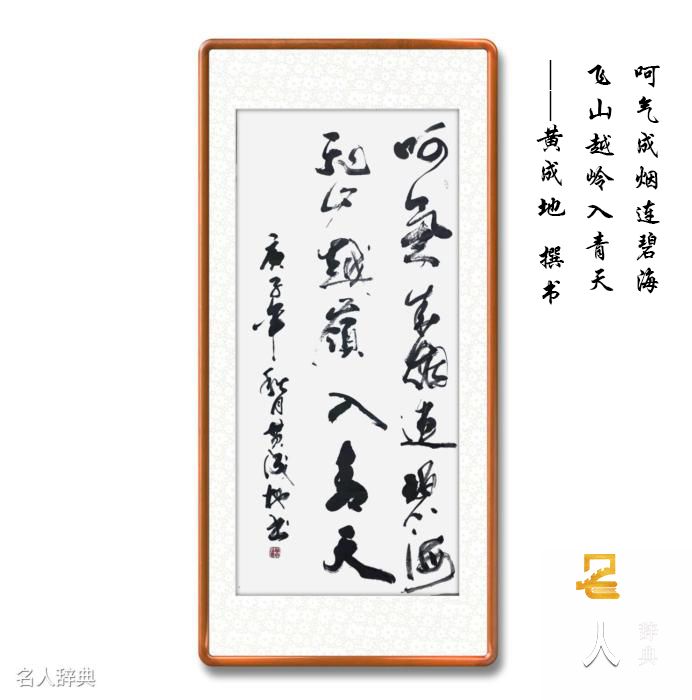 呵氣成煙連碧海
飛山越嶺入青天
庚子年秋月黄成地书
呵气成烟连碧海
飞山越岭入青天
——黄成地 撰书
名人辞典
名人辞典